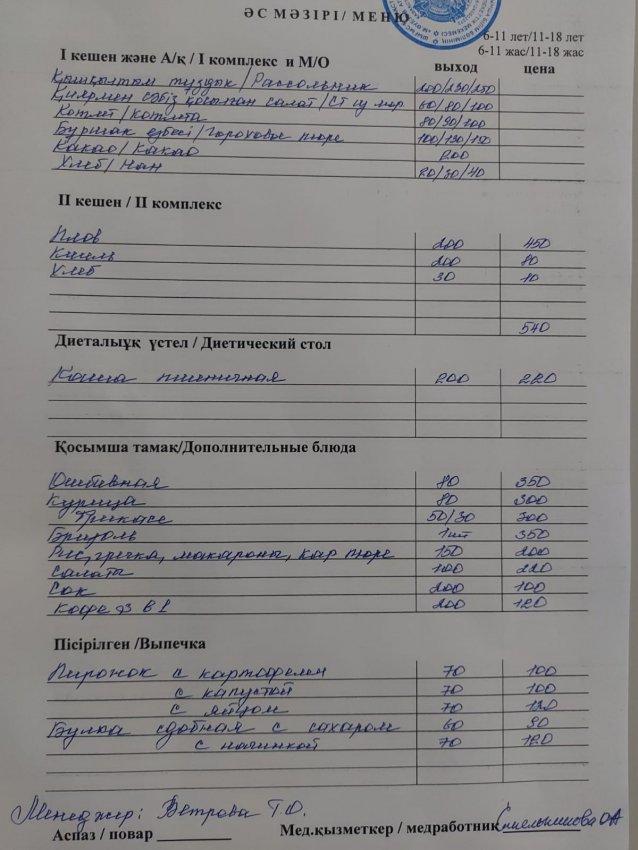 ӘС МӘЗІРІ / МЕНЮ
6-11 лет/11-18 лет
6-11 жас/11-18 жас
І кешен және А/қ / І комплекс и М/О выход цена
Қышқылтым тұздық / Рассольник 200/250/250
Қиярмен сәбіз қосылған салат / 60/80/100
Котлет / котлета 80/90/100
Бұршақ езбесі / гороховое пюре 100/130/150
Какао / Какао 200
Хлеб / Нан 20/30/40
ІІ кешен / ІІ комплекс
Плов 200 450
Кисель 200 80
Хлеб 30 10
540
Диеталыұқ үстел / Диетический стол
Каша пшеничная 200 220
Қосымша тамақ/Дополнительные блюда
Отбивная 80 350
Курица 80 300
Фрикасе 50/30 300
Бризоль 1шт 350
Рис, гречка, макароны, кар пюре 150 200
Салаты 100 220
Сок 200 100
Кофе 3 в 1 200 120
Пісірілген /Выпечка
Пирожок с картофелем 70 100
с капустой 70 100
с яйцом 70 120
Булка сдобная с сахаром 60 90
с начинкой 70 120
Менеджер: Ветрова Т.О.
Аспаз / повар Мед.қызметкер / медработник